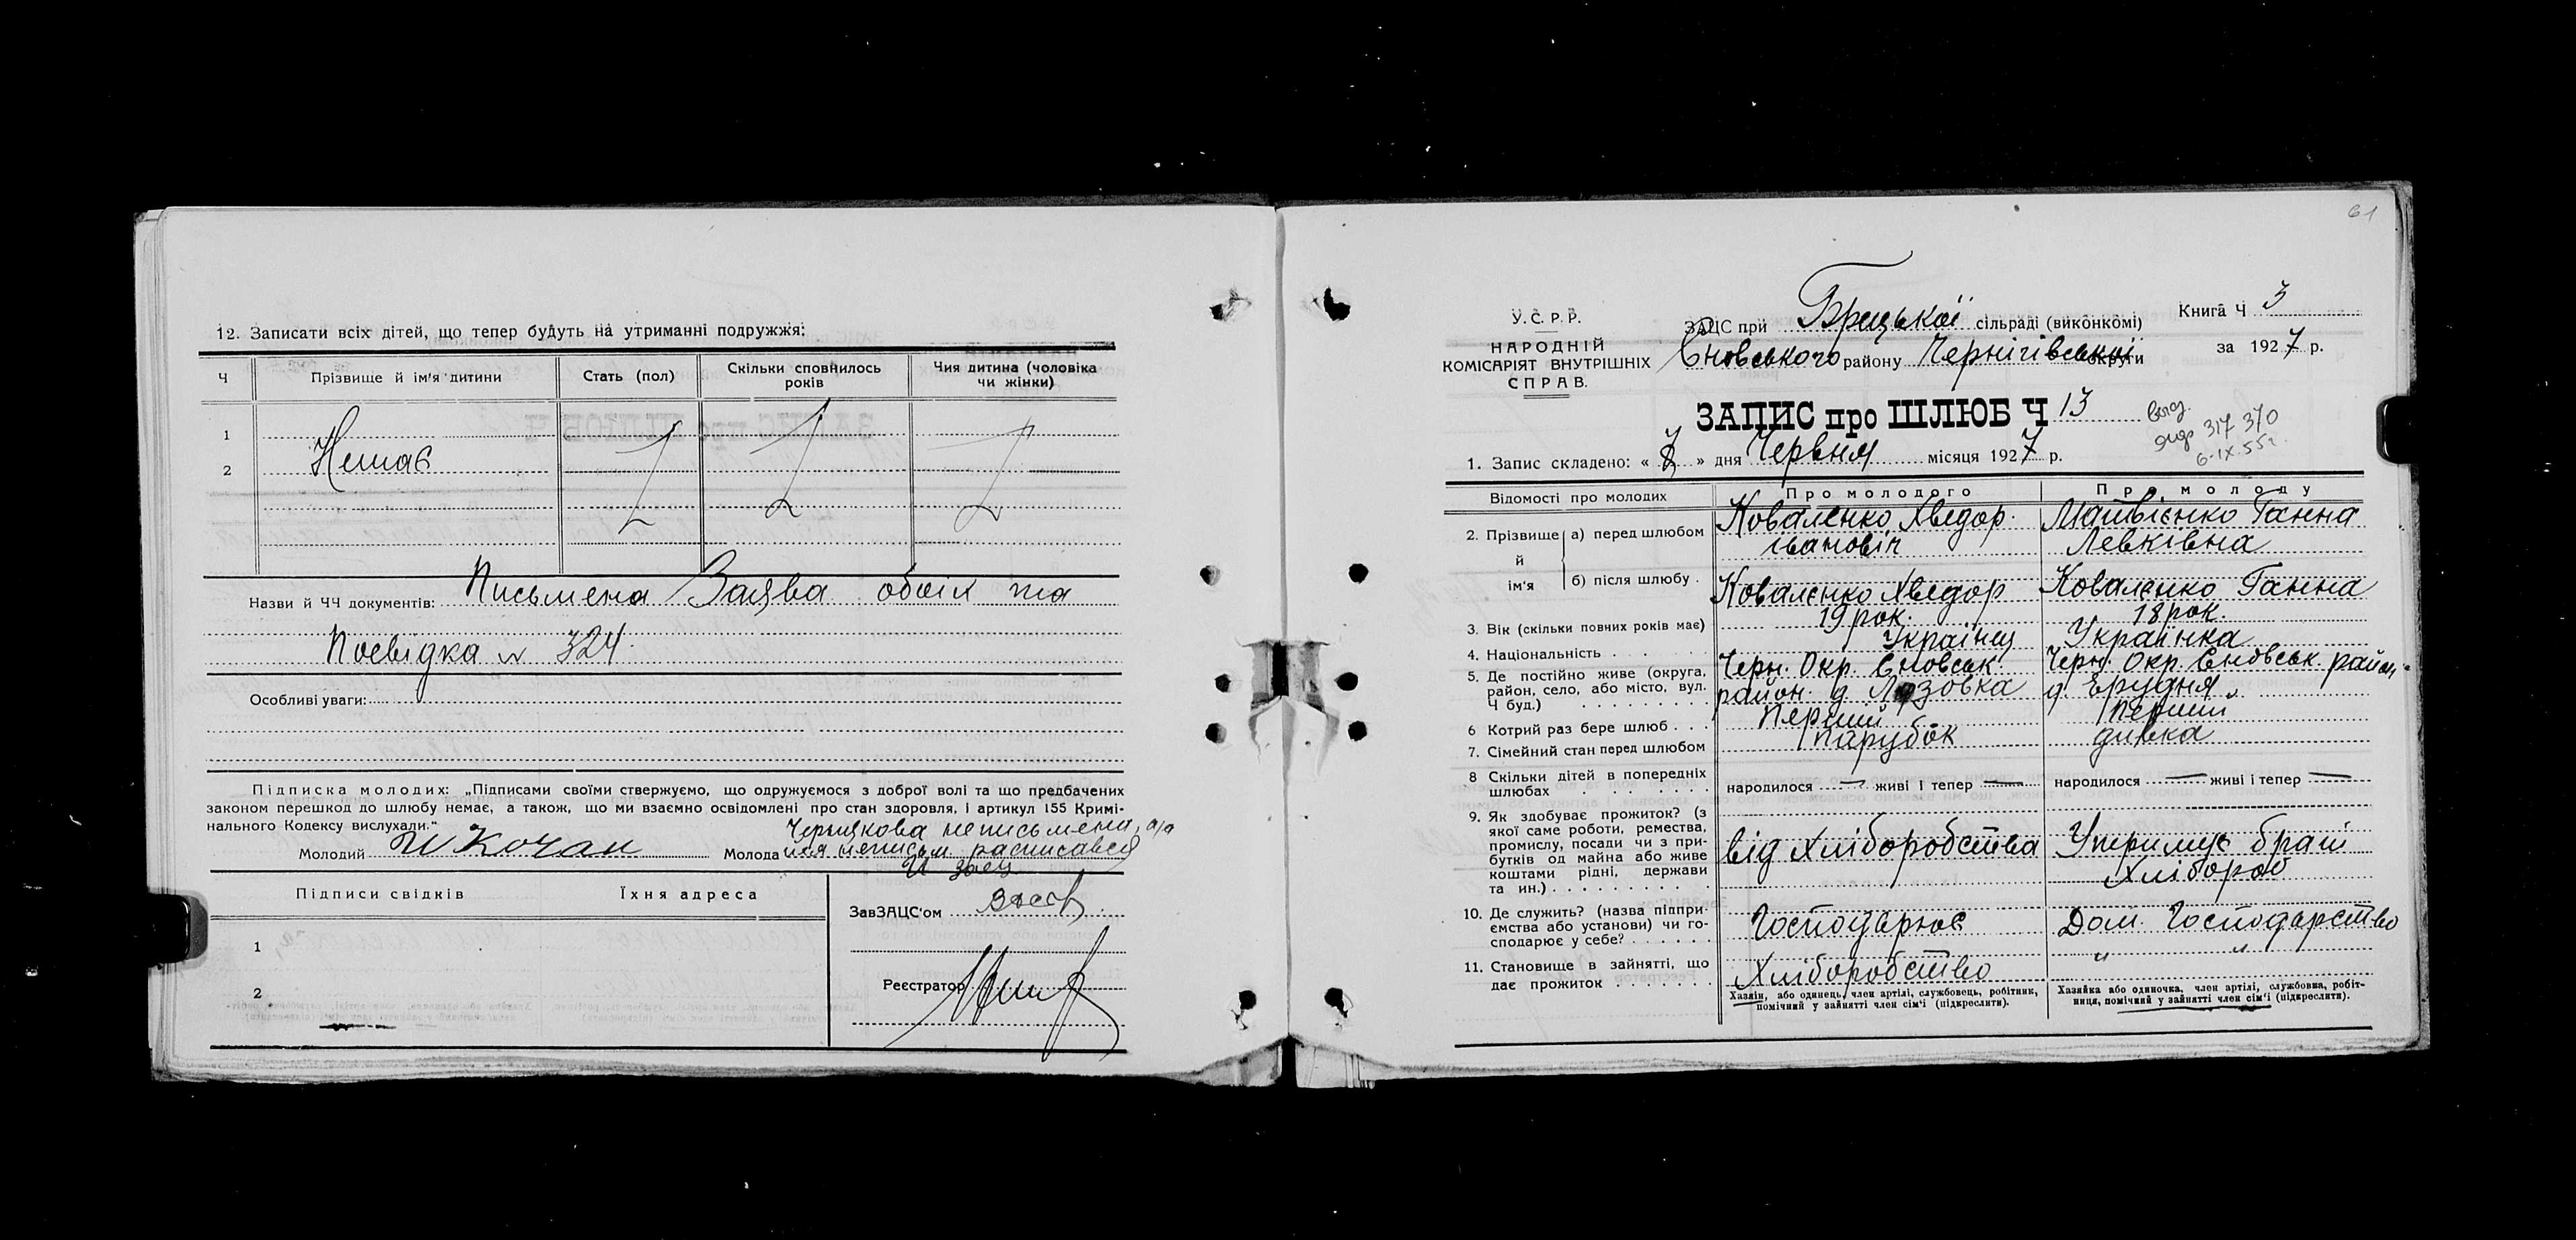 12. Записати всіх дітей, що тепер будуть на утриманні подружжя:
Ч
Прізвище й ім'я дитини
Стать (пол)
Скільки сповнилось років
Чия дитина (чоловіка чи жінки)
1
2 Немає
Назви й ЧЧ документів: Письмена Заява обоіх та
Посвідка № 324.
Особливі уваги:
Підписка молодих: „Підписами своїми стверджуємо, що одружуємося з доброї волі та що предбачених
законом перешкод до шлюбу немає, а також, що ми взаємно освідомлені про стан здоровля, і артикул 155 Кримі-
нального Кодексу вислухали."
Молодий Кочан Молода неписьм. расписався
Підписи свідків
Їхня адреса
1
2
ЗавЗАЦС'ом Заєц
Реєстратор
61
У.С.Р.Р.
НАРОДНІЙ
КОМІСАРІЯТ ВНУТРІШНІХ
СПРАВ.
ЗАЦС при Брецької сільраді (виконкомі)
Сновського району Чернігівської округи
Книга Ч 3
за 1927 р.
ЗАПИС про ШЛЮБ Ч 13
317 370
6-IX.55г.
1. Запис складено: « 7 » дня Червня місяця 1927 р.
Відомості про молодих
Про молодого
Про молоду
2. Прізвище й ім'я
а) перед шлюбом
Коваленко Хведор
івановіч
Матвієнко Ганна
Левківна
б) після шлюбу
Коваленко Хведор
Коваленко Ганна
3. Вік (скільки повних років має)
19 рок.
18 рок.
4. Національність
Українец
Українка
5. Де постійно живе (округа,
район, село, або місто, вул.
Ч буд.)
Черн. Окр. Сновськ.
район. д Лозовка
Черн. Окр. Сновськ. район
д.
6 Котрий раз бере шлюб
Перший
Перший
7. Сімейний стан перед шлюбом
Парубок
дивка
8 Скільки дітей в попередніх
шлюбах
народилося — живі і тепер —
народилося — живі і тепер —
9. Як здобуває прожиток? (з
якої саме роботи, ремества,
промислу, посади чи з при-
бутків од майна або живе
коштами рідні, держави
та ин.)
від Хліборобства
Утримує брат
Хлібороб
10. Де служить? (назва підпри-
ємства або установи) чи го-
сподарює у себе?
Господарює
Дом. Господарство
11. Становище в зайнятті, що
дає прожиток
Хліборобство
" "
Хазяїн, або одинець, член артілі, службовець, робітник,
помічний у зайнятті член сім'ї (підкреслити).
Хазяйка або одиночка, член артілі, службовка, робіт-
ниця, помічний у зайнятті член сім'ї (підкреслити).